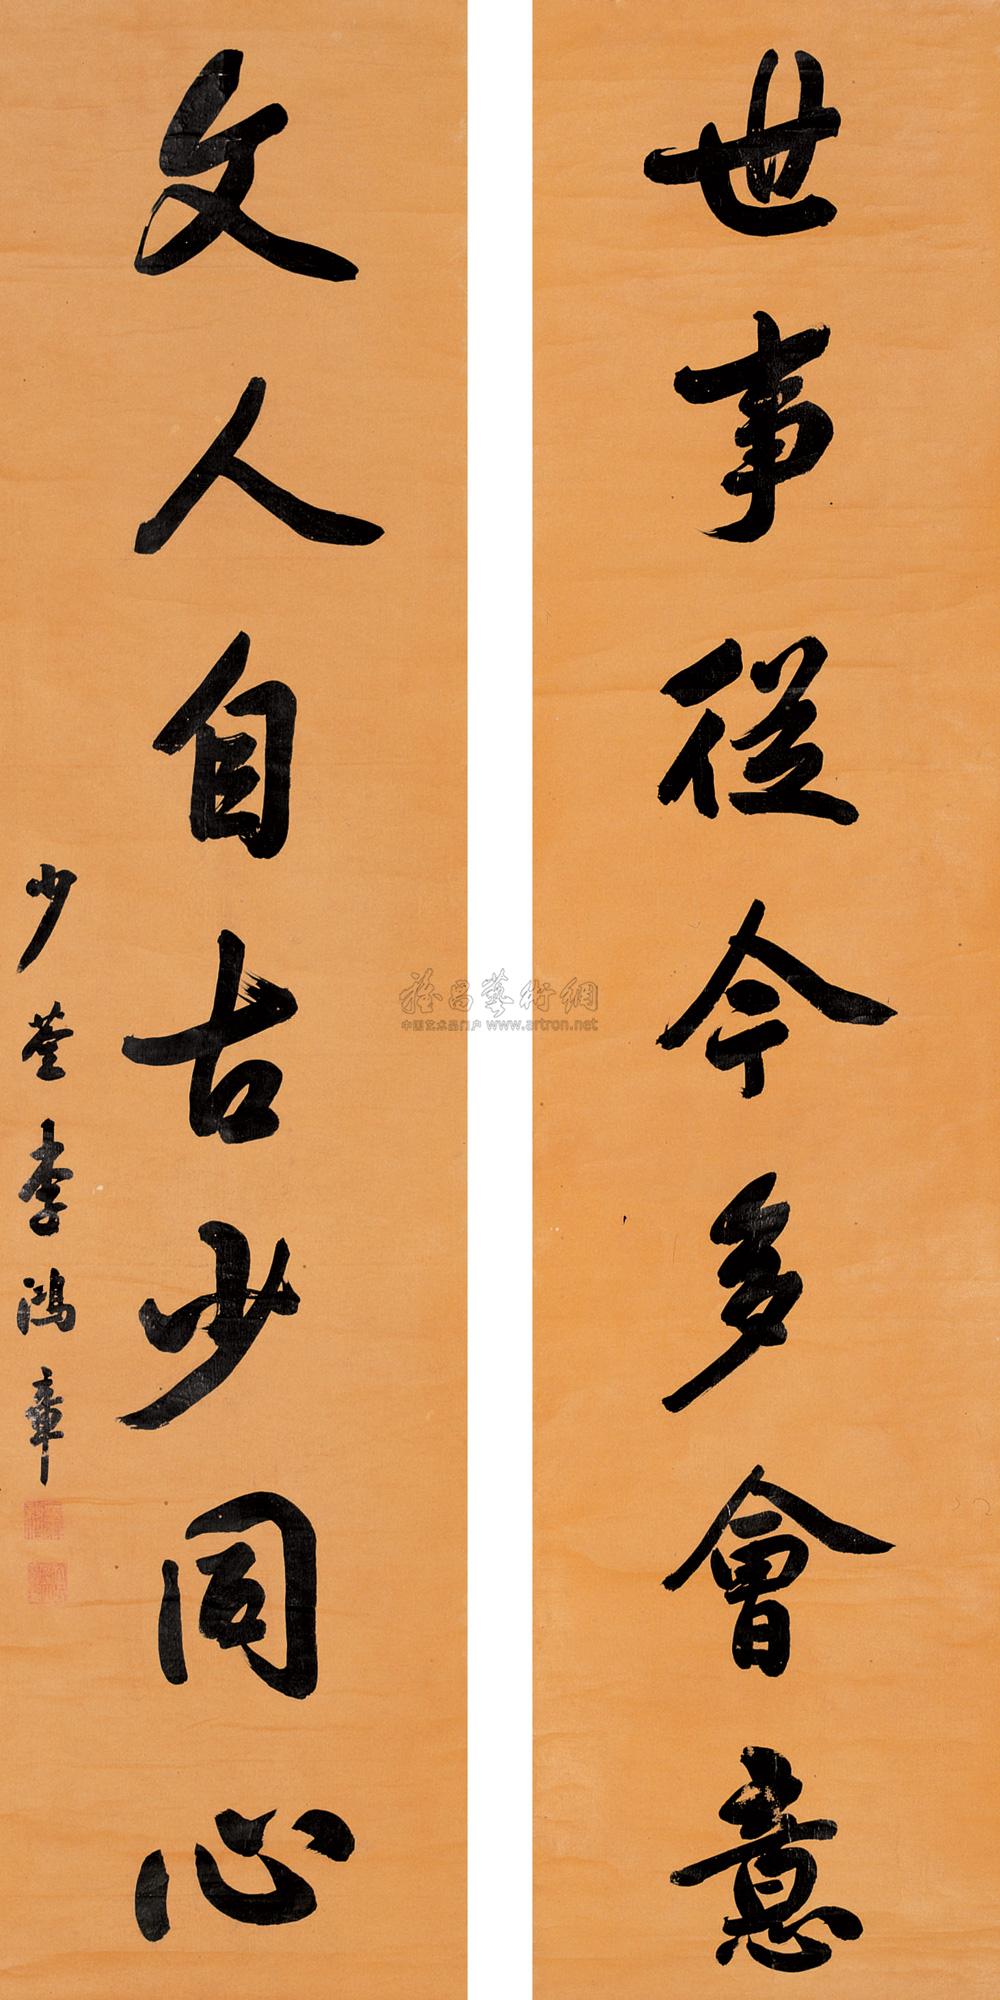 世事從今多會意
文人自古少同心
少荃李鴻章
雅昌藝術網
中国艺术品门户 www.artron.net